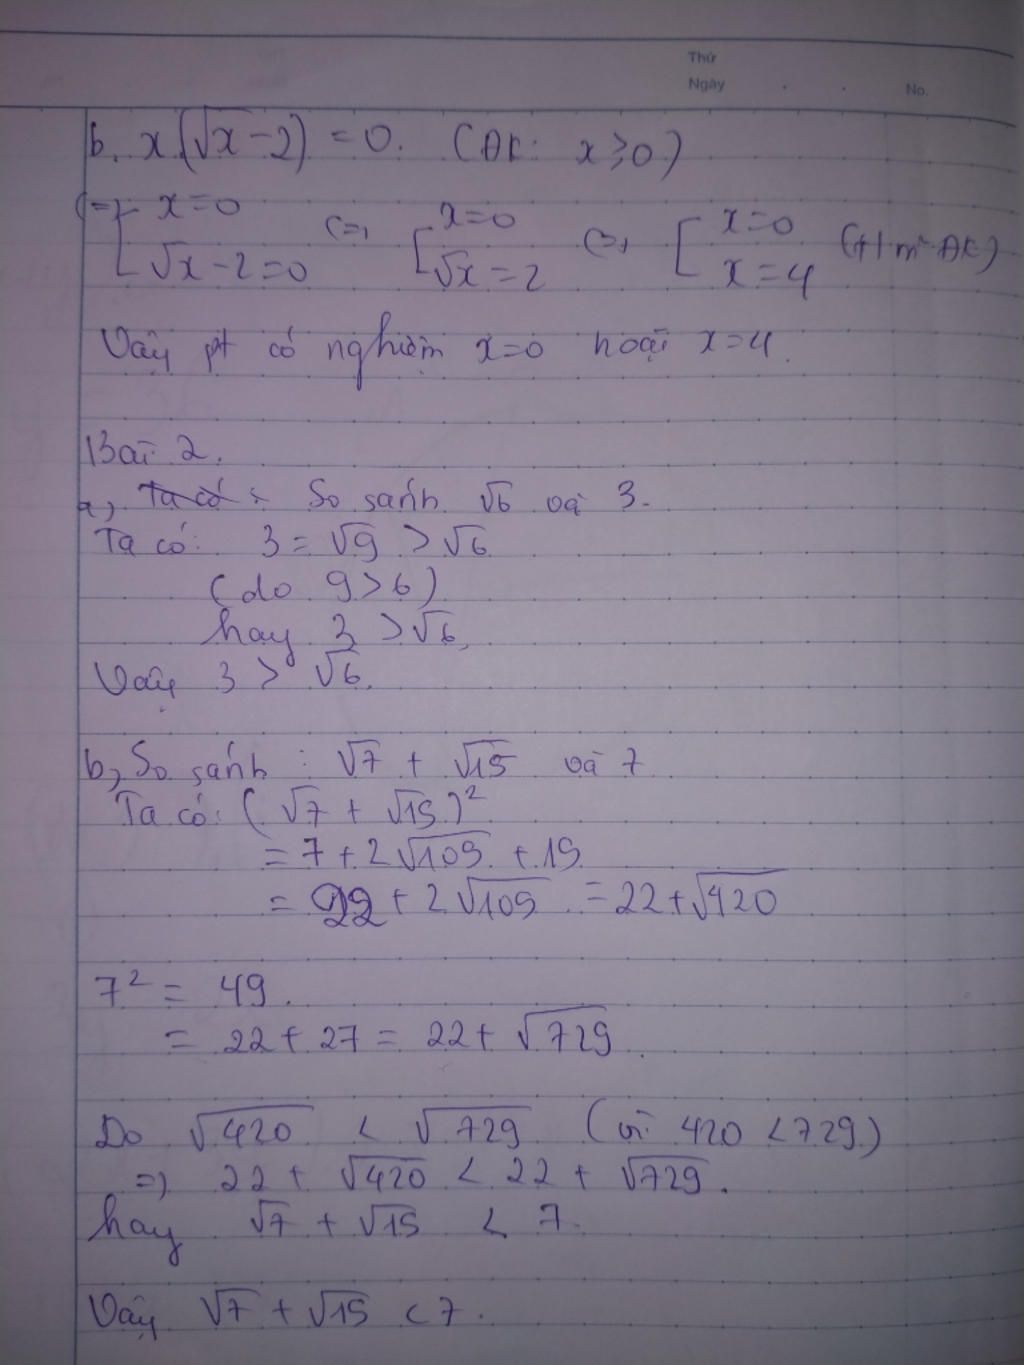 Thứ
Ngày . . No.
b. x(√x-2) = 0. (ĐK: x≥0)
(=) [ x=0 (=) [ x=0 (=) [ x=0 (t/m ĐK)
√x-2=0 √x=2 x=4
Vậy pt có nghiệm x=0 hoặc x=4.
Bài 2.
a, Ta có: So sánh √6 và 3.
Ta có: 3 = √9 > √6
(do 9>6)
hay 3 > √6.
Vậy 3 > √6.
b, So sánh : √7 + √15 và 7
Ta có: (√7 + √15)²
= 7 + 2√105 + 15
= 22 + 2√105 = 22+√420
7² = 49.
= 22 + 27 = 22 + √729.
Do √420 < √729 (vì 420 < 729)
=> 22 + √420 < 22 + √729.
hay √7 + √15 < 7.
Vậy √7 + √15 < 7.